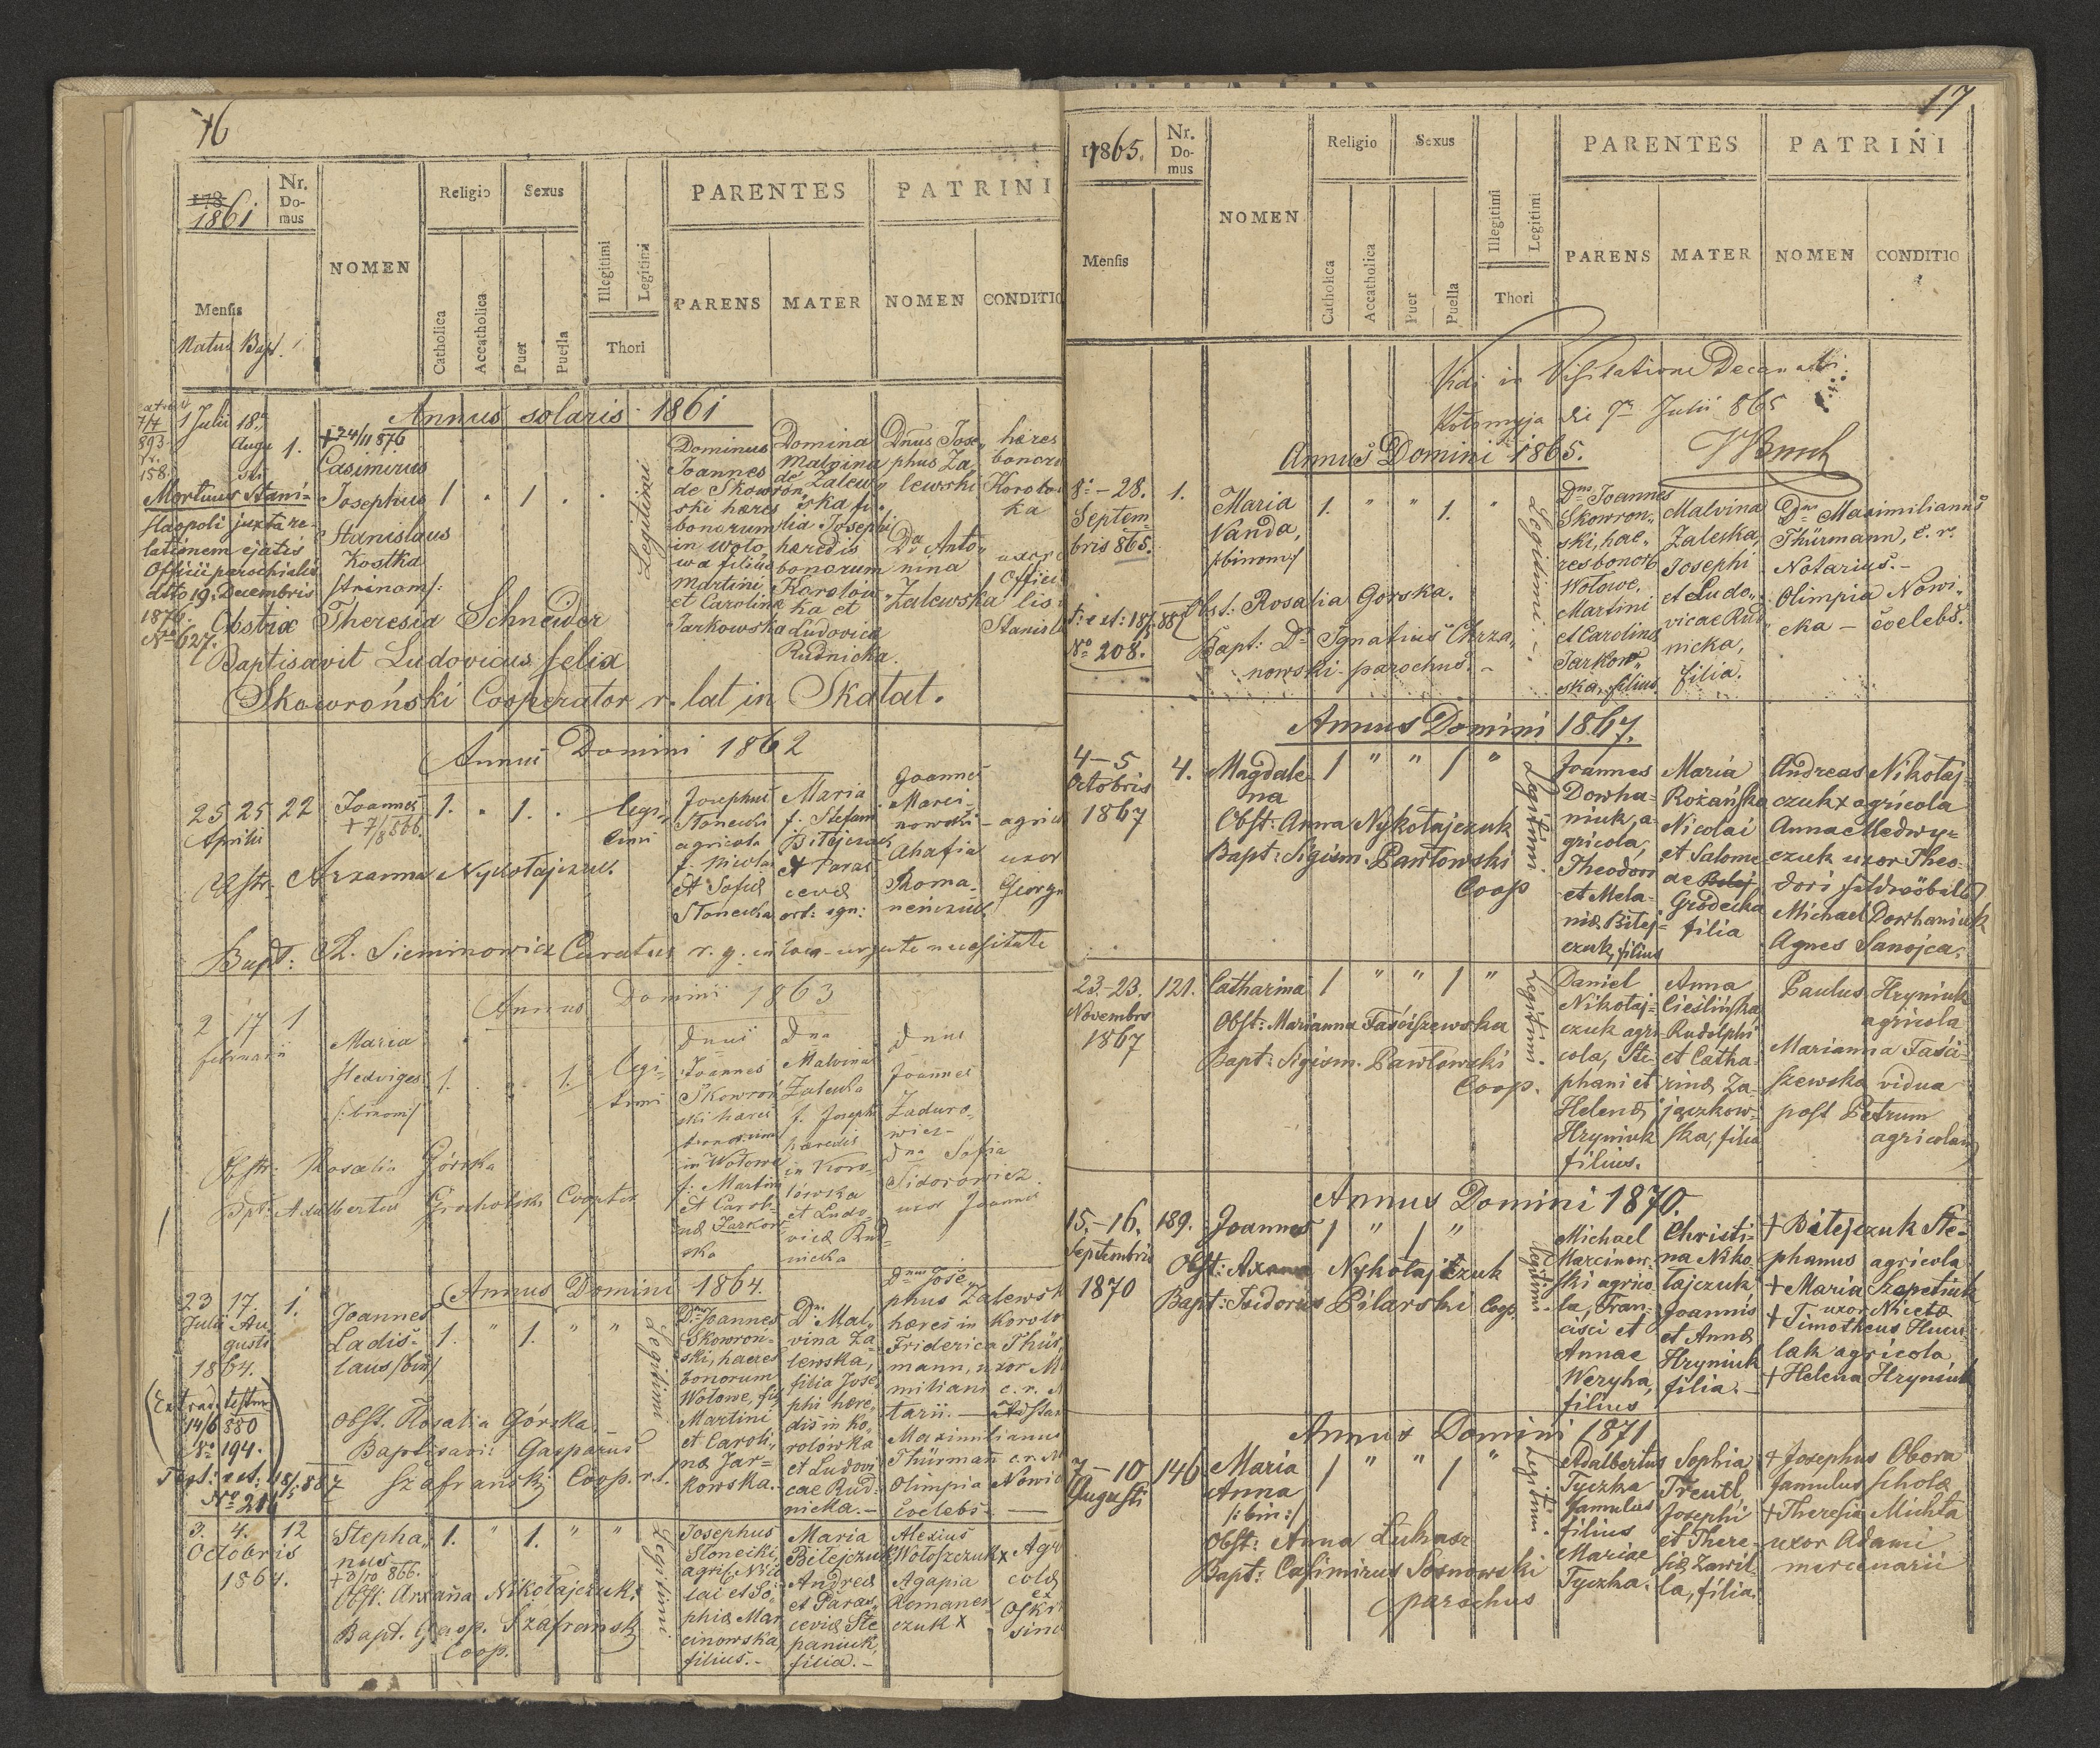 16
178
1861
Nr.
Do-
mus
NOMEN
Religio
Sexus
Catholica
Accatholica
Puer
Puella
Illegitimi
Legitimi
Thori
PARENTES
PATRINI
PARENS
MATER
NOMEN
CONDITIO
Mensis
Natus Bapt.
Annus solaris 1861
1 Julii 18.
Augu
sti
1.
+ 24/11 876
Casimirus
Josephus
Stanislaus
Kostka
/:trinom:/
1 . 1 . .
Legitimi
Dominus
Joannes
de Skowron„
ski haeres
bonorum
in Woto
wa filius
Martini
et Carolina
Jarkowska
Domina
Malvina
de Zalew„
ska fi„
lia Josephi
haeredis
bonorum
Korolów
ka et
Ludovica
Rudnicka.
Dnus Jose„
phus Za„
lewski
Da Anto„
nina
Zalewska
haeres
bonoru
Korolow
ka
uxor
Offici
lis
Stanisl
7/7
893
158.
Mortuus Stani=
slaopoli juxta re-
lationem ejatis
Officii parochialis
ddto 19. Decembris
1876.
Nro 627.
Obstrix Theresia Schneider
Baptisavit Ludovicus felix
Skowroński Cooperator r. lat in Skalat.
Annus Domini 1862
25 25 22
Aprilis
Joannes
+ 7/8 866.
1. . 1. .
legi„
timi
Josephus
Słonecki
agricola
f. Nicolai
et Sofia
Słonecka
Maria
f. Stefani
Biłejczuk
et Paras
cevae
ort: ogn:
Joannes
Marci-
nowski
Ahafia
Roma-
neńczuk
agric
uxor
Georgii
Obstr. Arxanna Nykołajczuk.
Bapt: A. Sieminowicz Curatus r. g. in loco urgente necessitate
Annus Domini 1863
2 17 1
februarii
Maria
Hedviges
/:binom:/
1. . . 1.
legi-
timi
Dnus
Joannes
Skowroń
ski haeres
bonorum
in Wołowe
f. Martini
et Caroli-
nae Jarkow
ska
Dna
Malvina
Zaleska
f. Josephi
haeredis
in Koro-
lówka
et Ludo-
vicae Rud-
nicka
Dnus
Joannes
Zaduro-
wicz-
Dna Sofia
Sidorowicz
uxor Joannis
Obstr. Rosalia Górska
Bpt: Adalbertus Grocholski Cooptor
Annus Domini 1864.
23 17.
Julii Au
gusti
1864.
1.
Joannes
Ladis-
laus /bin/
1. " 1. " "
Legitimi
Dnus Joannes
Skowron-
ski, haeres
bonorum
Wołowe, fil
Martini
et Caroli„
nae Jar=
kowska.
Dna Mal„
vina Za„
lewska,
filia Jose„
phi haere„
dis in Ko„
rolówka
et Ludovi
cae Rud„
nicka.-
Dnus Jose„
phus Zalewsk
haeres in Korolow
Friderica Thür„
mann, uxor M
miliani c. r. N
tarii. -
Maximilianus
Thürman c. r. N
Olimpia Nowic
coelebs -
(Extrad: testim
14/6 880
No 194.)
Test: ext: 18/5 887
No 216
Obst. Rosalia Górska.
Baptisavit Gasparus
Szafrański Coop. r. l.
3. 4. 12
Octobris
1864.
Stepha„
nus
+ 3/10 866.
1. " 1. " "
Legitimi
Josephus
Słonecki,
agric Nico
lai et So„
phia Mar
cinowska,
filius.-
Maria
Biłejczuk
Andreae
et Paras„
ceviae Ste
paniuk,
filia.-
Alexius
Wołoszczuk x
Agapia
Romanen
czuk x
Agri
colae
et
Obst: Arxana Nikołajczuk.
Bapt. Gasp. Szafrański
Coop.
17
1865.
Nr.
Do-
mus
Mensis
NOMEN
Religio
Sexus
Catholica
Accatholica
Puer
Puella
Illegitimi
Legitimi
Thori
PARENTES
PATRINI
PARENS
MATER
NOMEN
CONDITIO
Vidi in Visitatione Decanali
Kołomyja die 7a Julii 865
Annus Domini 1865.
8. - 28.
Septem-
bris 865.
1.
Maria
Vanda,
/:binom:/
1. " " 1. "
Legitimi.-
Dnus Joannes
Skowron„
ski, hae„
res bonor.
Wołowe,
Martini
et Carolina
Jarkow„
ska, filius
Malvina
Zaleska,
Josephi
et Ludo„
vicae Rud
nicka,
filia.
Dnus Maximilianus
Thürmann, c. r.
Notarius.-
Olimpia Nowi„
cka - coelebs.
No 208.
Obst. Rosalia Gorska.
Bapt: Ds Ignatius Chrza„
nowski parochus.-
Annus Domini 1867.
4-5
Octobris
1867
4.
Magdale
na
1 " " 1 "
Legitim.
Joannes
Dowha-
niuk, a-
gricola,
Theodori
et Mela-
niae Biłej-
czuk, filius
Maria
Rożańska
Nicolai
et Salome
ae
Grodecka
filia
Andreas Nikołaj-
czuk x agricola
Anna Medwy-
czuk uxor Theo-
dori
Michael Dowhaniuk
Agnes Sanojca.
Obst: Anna Nykołajczuk
Bapt: Sigism. Pawłowski
Coop
23.-23.
Novembris
1867
121.
Catharina
1 " " 1 "
Legitim.
Daniel
Nikołaj-
czuk agri-
cola, Ste-
phani et
Helenae
Hryniuk
filius.
Anna
Cieślińska
Rudolphi
et Catha-
rinae Za-
jączkow-
ska, filia
Paulus Hryniuk
agricola
Marianna Faści-
szewska vidua
post Petrum
agricolam
Obst: Marianna Faściszewska
Bapt: Sigism. Pawłowski
Coop.
Annus Domini 1870.
15.-16.
Septembris
1870
189.
Joannes
1 " 1 "
Legitim.
Michael
Marcinow-
ski agrico-
la, Fran-
cisci et
Annae
Weryha,
filius
Christi-
na Niko-
łajczuk
Joannis
et Annae
Hryniuk
filia.-
+ Biłejczuk Ste-
phanus agricola
+ Maria Szepetiuk
uxor Nicetae
+ Timotheus Hucu
lak agricola
+ Helena Hryniuk
Obst: Axana Nykołajczuk
Bapt: Isidorus Pilarski Coop.
Annus Domini 1871
7-10
Augusti
146
Maria
Anna
/:bin:/
1 " " 1 "
Legitim.
Adalbertus
Tyczka
famulus
filius
Mariae
Tyczka.
Sophia
Treutl
Josephi
et There-
siae Zawil-
la, filia.
+ Josephus Obora
famulus scholae
+ Theresia Michta
uxor Adami
mercenarii
Obst: Anna Łukasz
Bapt: Casimirus Sosnowski
parochus